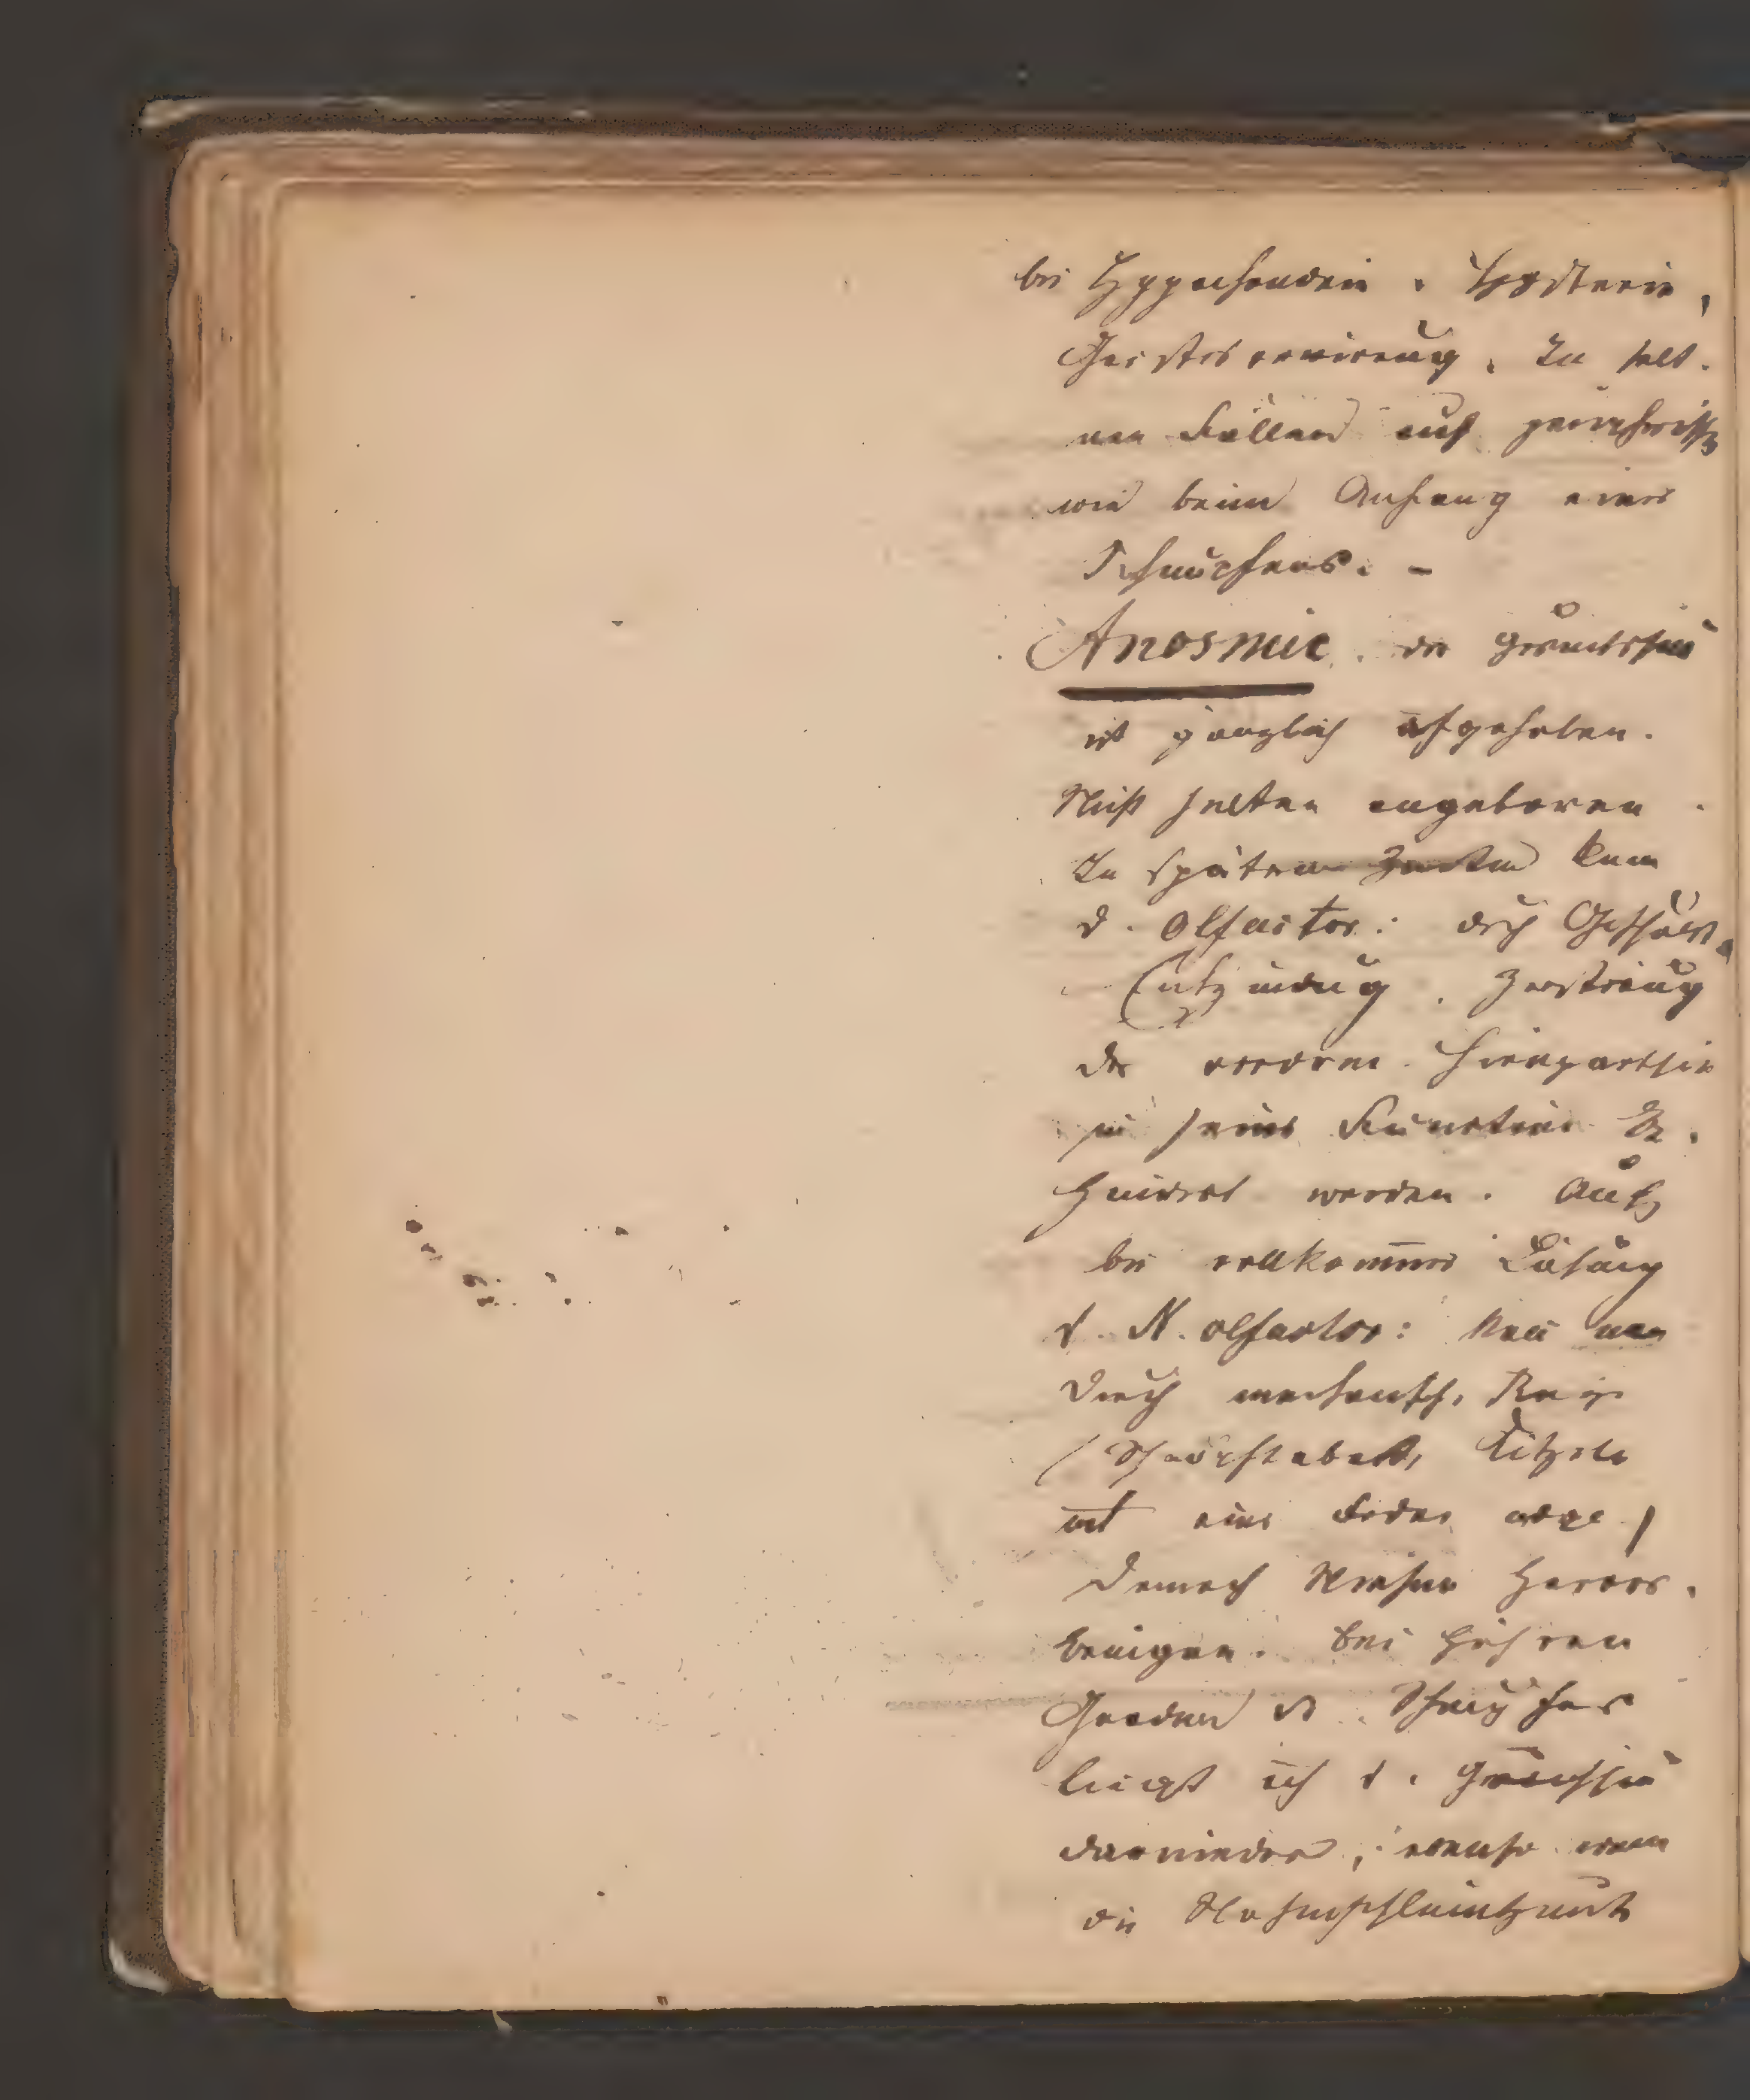 bei Hypochondrie, Hysterie,
Geistesverwirrung. In selt-
nen Fällen auch peripherisch
wie beim Anfang eines
Schnupfens. -
Anosmie. der Geruchssinn
ist gänzlich aufgehoben.
Nicht selten angeboren.
In spätern Zeiten kann
d. Olfactor: durch Geschwulst,
Entzündung, Zerstörung
der vordern Hirnparthie
in seiner Funktion Ge-
hindert werden. Auch
bei vollkommner Lähmung
d. N. olfactor: kann man
durch mechanisch. Reize
(Schnupftabak, Kitzeln
mit einer Feder)
dennoch Niesen hervor-
bringen. bei höhren
Graden des Schnupfens
liegt auch d. Geruchssinn
darnieder; ebenso wenn
die Nasenschleimhaut